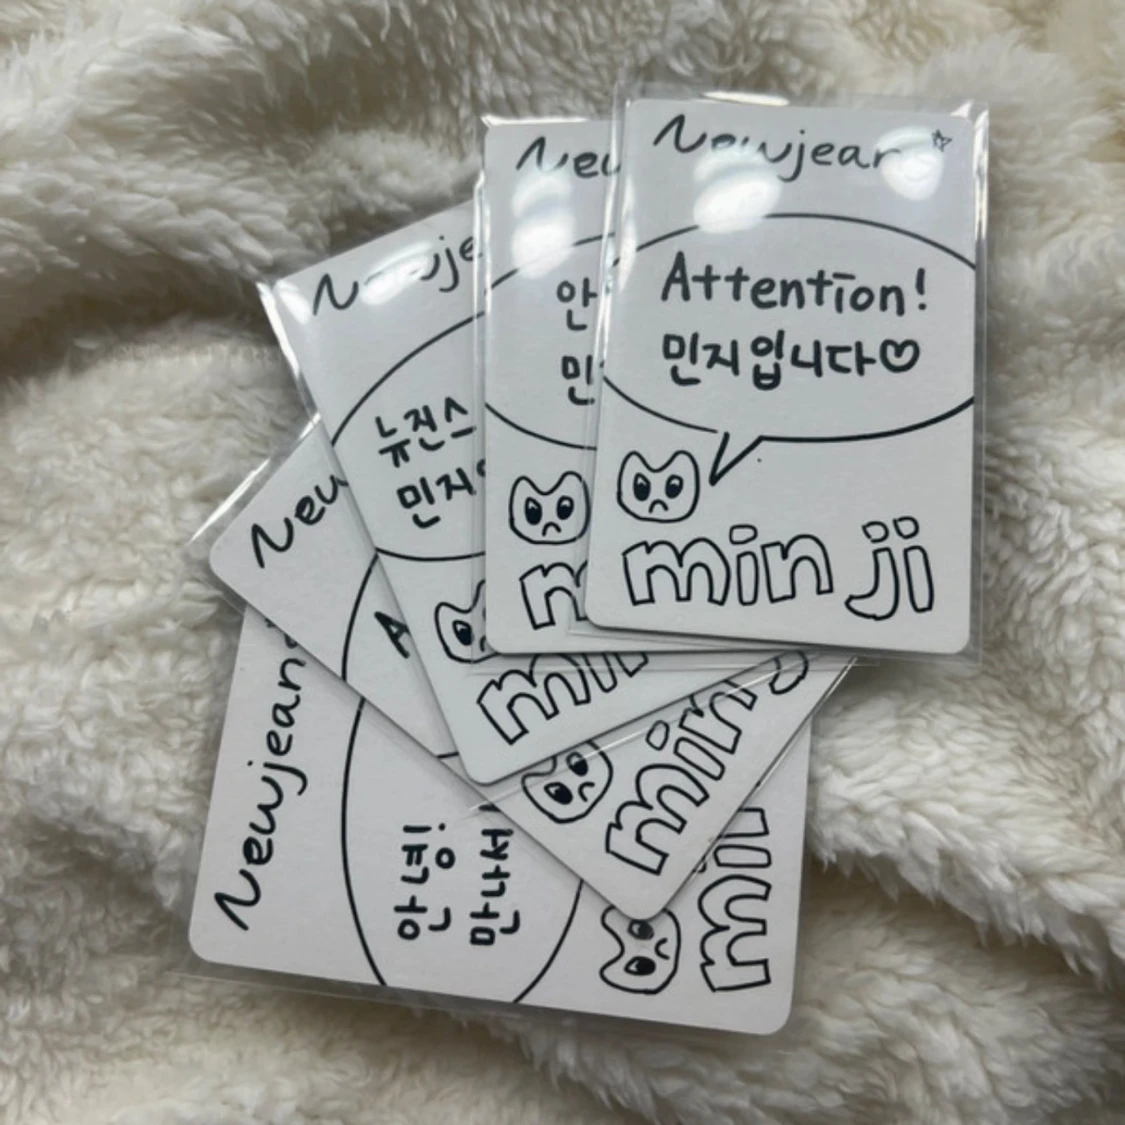 Newjeans
Attention!
민지입니다♡
min ji
New
안
민
Newje
뉴진스
민지
min
New
A
min j
Newjeans
안녕!
만나서
min